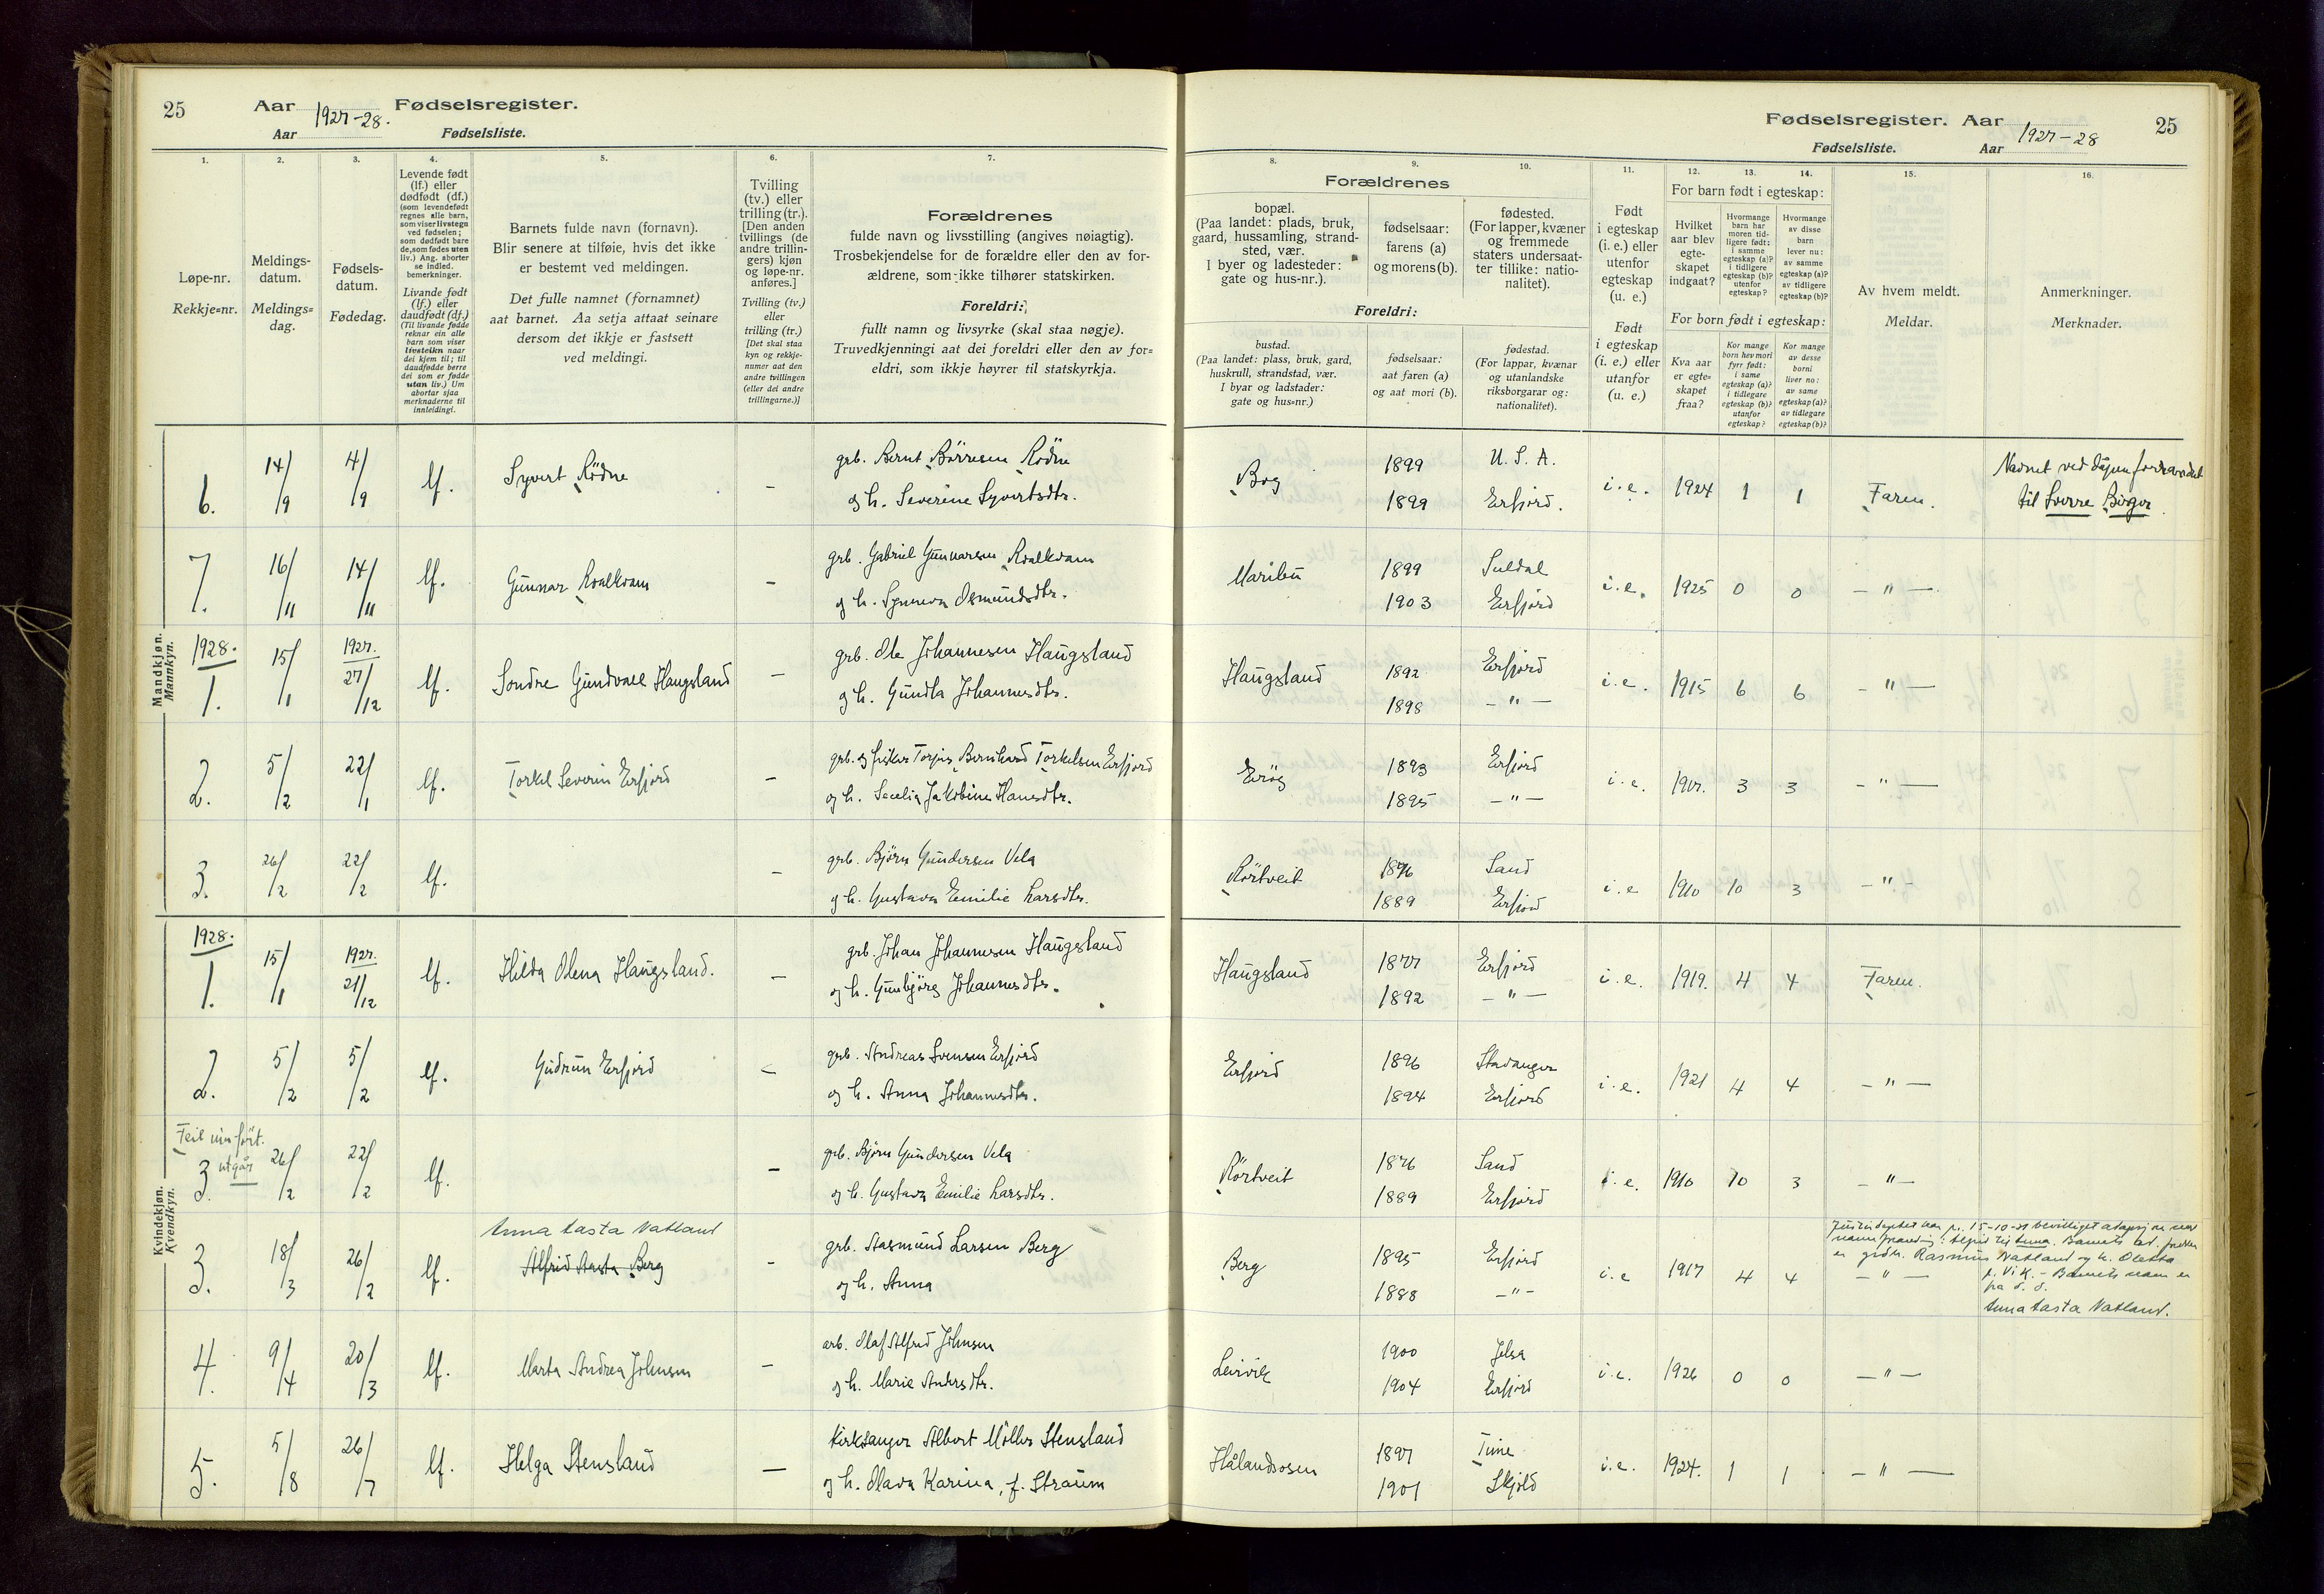 25 Aar 1927-28. Fødselsregister.
Aar Fødselsliste.
1. 2. 3. 4. 5. 6. 7.
Løpe-nr.
Rekkje-nr.
Meldings-
datum.
Meldings-
dag.
Fødsels-
datum.
Fødedag.
Levende født
(lf.) eller
dødfødt (df.)
(som levendefødt
regnes alle barn,
som viser livstegn
ved fødselen;
som dødfødt bare
de, som fødes uten
liv.) Ang. aborter
se indled.
bemerkninger.
Livande født
(lf.) eller
daudfødt (df.)
(Til livande fødde
reknar ein alle
barn som viser
livsteikn naar
dei kjem til; til
daudfødde berre
dei som er fødde
utan liv.) Um
abortar sjaa
merknaderne til
innleidingi.
Barnets fulde navn (fornavn).
Blir senere at tilføie, hvis det ikke
er bestemt ved meldingen.
Det fulle namnet (fornamnet)
aat barnet. Aa setja attaat seinare
dersom det ikkje er fastsett
ved meldingi.
Tvilling
(tv.) eller
trilling (tr.).
[Den anden
tvillings (de
andre trillin-
gers) kjøn
og løpe-nr.
anføres.]
Tvilling (tv.)
eller
trilling (tr.)
[Det skal staa
kyn og rekkje-
numer aat den
andre tvillingen
(eller dei andre
trillingarne.)]
Forældrenes
fulde navn og livsstilling (angives nøiagtig).
Trosbekjendelse for de forældre eller den av for-
ældrene, som ikke tilhører statskirken.
Foreldri:
fullt namn og livsyrke (skal staa nøgje).
Truvedkjenningi aat dei foreldri eller den av for-
eldri, som ikkje høyrer til statskyrkja.
Fødselsregister. Aar 1927-28 25
Fødselsliste. Aar
8. 9. 10. 11. 12. 13. 14. 15. 16.
Forældrenes
bopæl.
(Paa landet: plads, bruk,
gaard, hussamling, strand-
sted, vær.
I byer og ladesteder:
gate og hus-nr.).
fødselsaar:
farens (a)
og morens (b).
fødested.
(For lapper, kvæner
og fremmede
staters undersaat-
ter tillike: natio-
nalitet).
Foreldri:
bustad.
(Paa landet: plass, bruk, gard,
huskrull, strandstad, vær.
I byar og ladstader:
gate og hus-nr.)
fødselsaar:
aat faren (a)
og aat mori (b).
fødestad.
(For lappar, kvænar
og utanlandske
riksborgarar og:
nationalitet).
Født
i egteskap
(i. e.) eller
utenfor
egteskap
(u. e.)
Født
i egteskap
(i. e.) eller
utanfor
egteskap
(u. e.)
For barn født i egteskap:
Hvilket
aar blev
egte-
skapet
indgaat?
Hvormange
barn har
moren tid-
ligere født:
i samme
egteskap (a)?
i tidligere
egteskap (b)?
utenfor
egteskap?
Hvormange
av disse
barn
lever nu:
av samme
egteskap (a)?
av tidligere
egteskap (b)?
For born født i egteskap:
Kva aar
er egte-
skapet
fraa?
Kor mange
born hev mori
fyrr født:
i same
egteskap (a)?
i tidlegare
egteskap (b)?
utanfor
egteskap?
Kor mange
av desse
borni
liver no:
av same
egteskap (a)?
av tidlegare
egteskap (b)?
Av hvem meldt.
Meldar.
Anmerkninger.
Merknader.
Mandkjøn.
Mannkyn.
6. 14/9 4/9 lf. Syvert Rödne - grb. Bernt Börresen Rödne
og h. Severine Syvertsdtr.
Bog 1899 U.S.A. i.e. 1924 1 1 Faren.
1899 Erfjord.
Navnet ved dåpen forandret
til Sverre Birger.
7. 16/11 14/11 lf. Gunnar Kvalkvam - grb. Gabriel Gunnarsen Kvalkvam
og h. Synneva Osmundsdtr.
Maribu 1899 Suldal i.e. 1925 0 0 - " -
1903 Erfjord
1928.
1. 15/1 1927. 27/12 lf. Sondre Gundvald Haugsland - grb. Ole Johannesen Haugsland
og h. Gundla Johannesdtr.
Haugsland 1892 Erfjord i.e. 1915 6 6 - " -
1898 - " -
2. 5/2 22/1 lf. Torkel Severin Erfjord - grb. og fisker Torjus Bernhard Torkelsen Erfjord
og h. Secelia Jakobine Hansdtr.
1893 Erfjord i.e. 3 3 - " -
1895 - " -
3. 26/2 22/2 lf. - grb. Björn Gundersen Vela
og h. Gustava Emilie Larsdtr.
Rörtveit 1876 Sand i.e 1910 10 3 - " -
1889 Erfjord
Kvindekjøn.
Kvendkyn.
1928.
1. 15/1 1927. 21/12 lf. Hilda Olena Haugsland. - grb. Johan Johannesen Haugsland
og h. Gunbjörg Johannesdtr.
Haugsland 1877 Erfjord i.e. 1919. 4 4 Faren.
1892 - " -
2. 5/2 5/2 lf. Gudrun Erfjord - grb. Andreas Svensen Erfjord
og h. Anna Johannesdtr.
Erfjord 1896 Stavanger i.e. 1921 4 4 - " -
1894 Erfjord
Feil innfört.
utgår
3. 26/2 22/2 lf. - grb. Björn Gundersen Vela
og h. Gustava Emilie Larsdtr.
Rörtveit 1876 Sand i.e. 1910 10 3 - " -
1889 Erfjord
Anna Aasta Vatland
3. 18/3 26/2 lf. Alfrid Aasta Berg - grb. Aasmund Larsen Berg
og h. Anna
Berg 1895 Erfjord i.e 1917 4 4 - " -
1888 - " -
15-10-31 bevilliget adopsjon
Anna. Barnets
er grdbr. Rasmus Vatland og h. Oletta
p. Vik. - Barnets navn er
fra d. d.
Anna Aasta Vatland.
4. 9/4 20/3 lf. Marta Andrea Johnsen - arb. Olaf Alfred Johnsen
og h. Marie Andersdtr.
Leirvik 1900 Jelsa i.e. 1926 0 0 - " -
1904 Erfjord
5. 5/8 26/7 lf. Helga Stensland - kirkesanger Albert Möller Stensland
og h. Olava Karina, f. Straum
Hålandsosen 1897 Time i.e. 1924. 1 1 - " -
1901 Skjold